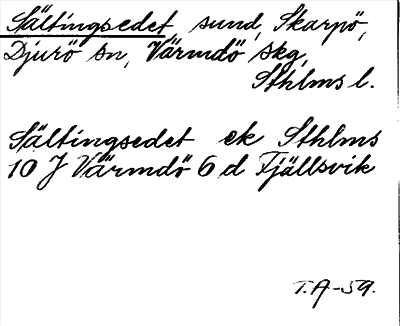 Sältingsedet, sund, Skarpö,
Djurö sn, Värmdö skg,
Sthlms l.
Sältingsedet ek Sthlms
10 J Värmdö 6 d Fjällsvik
T.A-59.